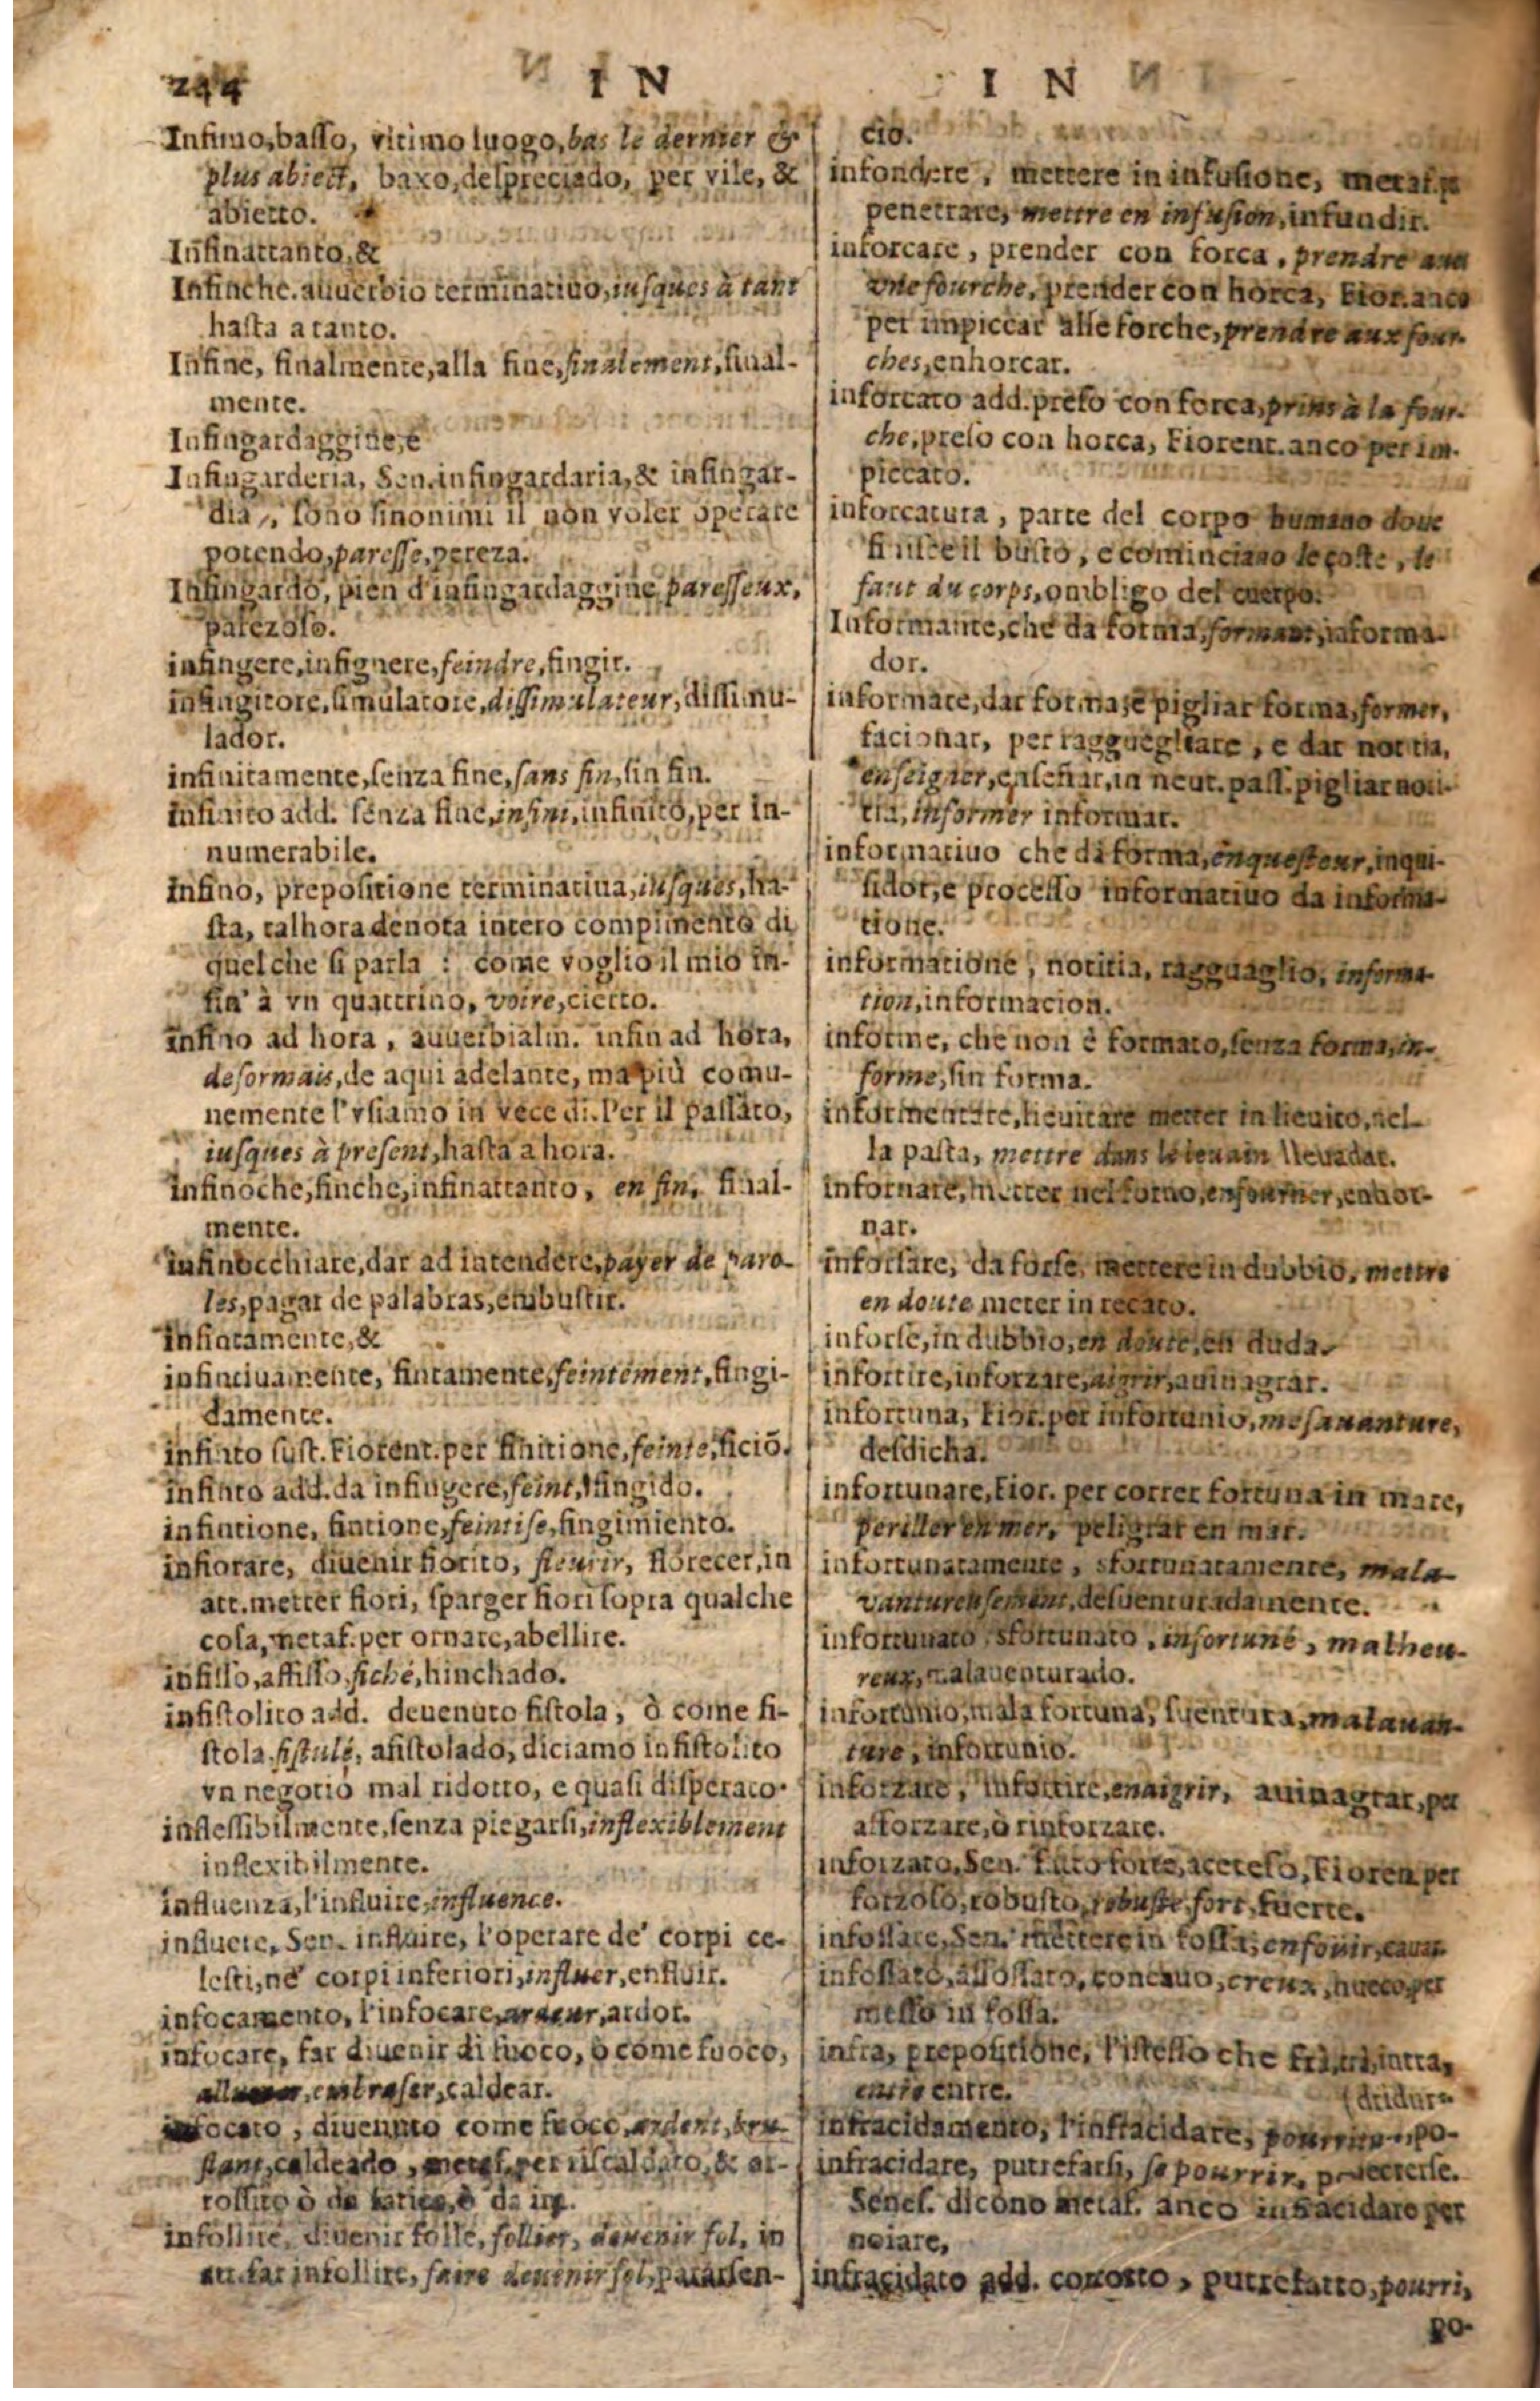 244 IN
Infimo, basso, vltimo luogo, bas le dernier &
plus abiect, baxo, despreciado, per vile, &
abietto.
Infinattanto, &
Infinche. auuerbio terminatiuo, iusques à tant
hasta a tanto.
Infine, finalmente, alla fine, finalement, final-
mente.
Infingardaggine, e
Infingarderia, Sen. infingardaria, & infingar-
dia, sono sinonimi il non voler operare
potendo, paresse, pereza.
Infingardo, pien d'infingardaggine paresseux,
parezoso.
infingere, infignere, feindre, fingir.
infingitore, simulatore, dissimulateur, dissimu-
lador.
infinitamente, senza fine, sans fin, sin fin.
infinito add. senza fine, infini, infinito, per in-
numerabile.
infino, prepositione terminatiua, iusques, ha-
sta, talhora denota intero compimento di
quel che si parla : come voglio il mio in-
fin' à vn quattrino, voire, cierto.
infino ad hora, auuerbialm. infin ad hora,
desormais, de aqui adelante, ma più comu-
nemente l'vsiamo in vece di. Per il passato,
iusques à present, hasta ahora.
infinoche, finche, infinattanto, en fin, final-
mente.
infinocchiare, dar ad intendere, payer de paro-
les, pagar de palabras, embustir.
infintamente, &
infintiuamente, fintamente, feintement, fingi-
damente.
infinto sust. Fiorent. per finitione, feinte, ficiõ.
infinto add. da infingere, feint, fingido.
infintione, fintione, feintise, fingimiento.
infiorare, diuenir fiorito, fleurir, florecer, in
att. metter fiori, sparger fiori sopra qualche
cosa, metaf. per ornare, abellire.
infisso, affisso, fiché, hinchado.
infistolito add. deuenuto fistola, ò come fi-
stola, fistulé, afistolado, diciamo infistolito
vn negotio mal ridotto, e quasi disperato.
inflessibilmente, senza piegarsi, inflexiblement
inflexibilmente.
influenza, l'influire, influence.
influere, Sen. influire, l'operare de' corpi ce-
lesti, ne' corpi inferiori, influer, enfluir.
infocamento, l'infocare, ardeur, ardor.
infocare, far diuenir di fuoco, ò come fuoco,
embraser, caldear.
infocato, diuenuto come fuoco, ardent, bru-
slant, caldeado, metaf. per riscaldato, & ar-
rossito ò da fatica, ò da ira.
infollire, diuenir folle, follier, deuenir fol, in
att. far infollire, faire deuenir fol,
IN
cio.
infondere, mettere in infusione, metaf. p
penetrare, mettre en infusion, infundir.
inforcare, prender con forca, prendre auec
vne fourche, prender con horca, Fior. anco
per impiccar alle forche, prendre aux four-
ches, enhorcar.
inforcato add. preso con forca, prins à la four-
che, preso con horca, Fiorent. anco per im-
piccato.
inforcatura, parte del corpo humano doue
finisce il busto, e cominciano le coste, le
faut du corps, ombligo del cuerpo.
Informante, che da forma, formant, informa-
dor.
informare, dar forma, e pigliar forma, former,
facionar, per raggueghare, e dar notitia,
enseigner, enseñar, in neut. pass. pigliar noti-
tia, informer informar.
informatiuo che da forma, enquesteur, inqui-
sidor, e processo informatiuo da informa-
tione.
informatione, notitia, ragguaglio, informa-
tion, informacion.
informe, che non è formato, senza forma, in-
forme, sin forma.
informentare, lieuitare metter in lieuito, nel-
la pasta, mettre dans le leuain lleuadar.
infornare, metter nel forno, enfourner, enhor-
nar.
inforsare, da forse, mettere in dubbio, mettre
en doute meter in recato.
inforse, in dubbio, en doute, en duda.
infortire, inforzare, aigrir, auinagrar.
infortuna, Fior. per infortunio, mesauanture,
desdicha.
infortunare, Fior. per correr fortuna in mare,
periller en mer, peligrar en mar.
infortunatamente, sfortunatamente, mala-
vantureusement, desuenturadamente.
infortunato, sfortunato, infortuné, malheu-
reux, malauenturado.
infortunio, mala fortuna, suentura, malauan-
ture, infortunio.
inforzare, infortire, enaigrir, auinagrar, per
afforzare, ò rinforzare.
inforzato, Sen. fatto forte, acetoso, Fioren per
forzoso, robusto, robuste, fort, fuerte.
infossare, Sen. mettere in fossa, enfouir, cauar
infossato, affossato, concauo, creux, hueco, per
messo in fossa.
infra, prepositione, l'istesso che frà, trà, intra,
entre entre. (dridura
infracidamento, l'infracidare, po-
infracidare, putrefarsi, se pourrir, podrecerse.
Senes. dicono metaf. anco infracidare per
noiare,
infracidato add. corrotto, putrefatto, pourri,
po-